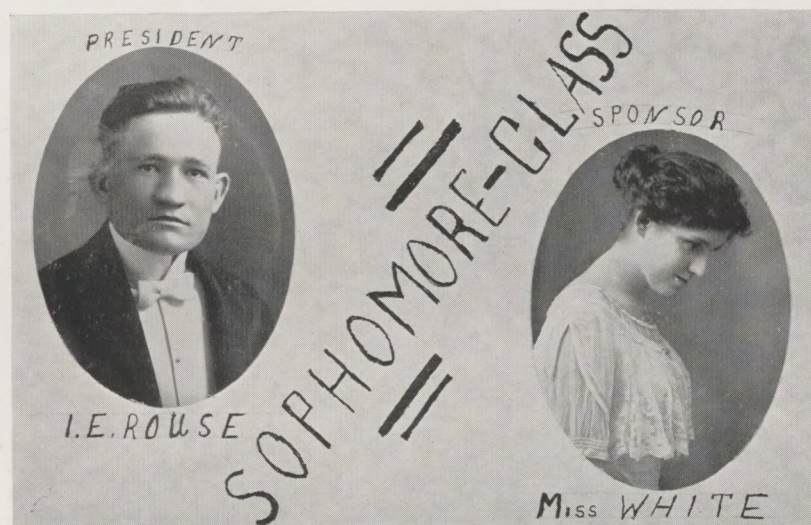 PRESIDENT
I.E. ROUSE
SOPHOMORE-CLASS
SPONSOR
Miss WHITE